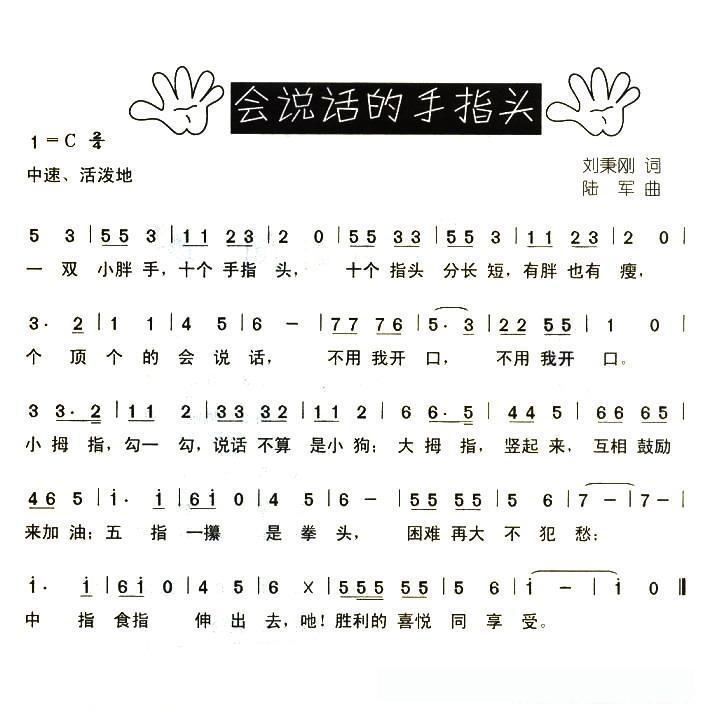 会说话的手指头
1=C 2/4
中速、活泼地
刘秉刚 词
陆 军 曲
5 3 | 55 3 | 11 23 | 2 0 | 55 33 | 55 3 | 11 23 | 2 0 |
一 双 小胖 手，十个 手指 头， 十个 指头 分长 短，有胖 也有 瘦，
3· 2 | 1 1 | 4 5 | 6 － | 77 76 | 5· 3 | 22 55 | 1 0 |
个 顶 个 的 会 说 话， 不用 我开 口， 不用 我开 口。
3 3·2 | 11 2 | 33 32 | 11 2 | 6 6·5 | 44 5 | 66 65 |
小 拇 指，勾一 勾，说话 不算 是小 狗；大 拇 指，竖起 来，互相 鼓励
46 5 | i· i | 6i 0 | 4 5 | 6 － | 55 55 | 5 6 | 7 － | 7 － |
来加 油；五 指 一攥 是 拳 头， 困难 再大 不 犯 愁；
i· i | 6i 0 | 4 5 | 6 X | 555 55 | 5 6 | i － | i 0 ‖
中 指 食指 伸 出 去，吔！胜利的 喜悦 同 享 受。